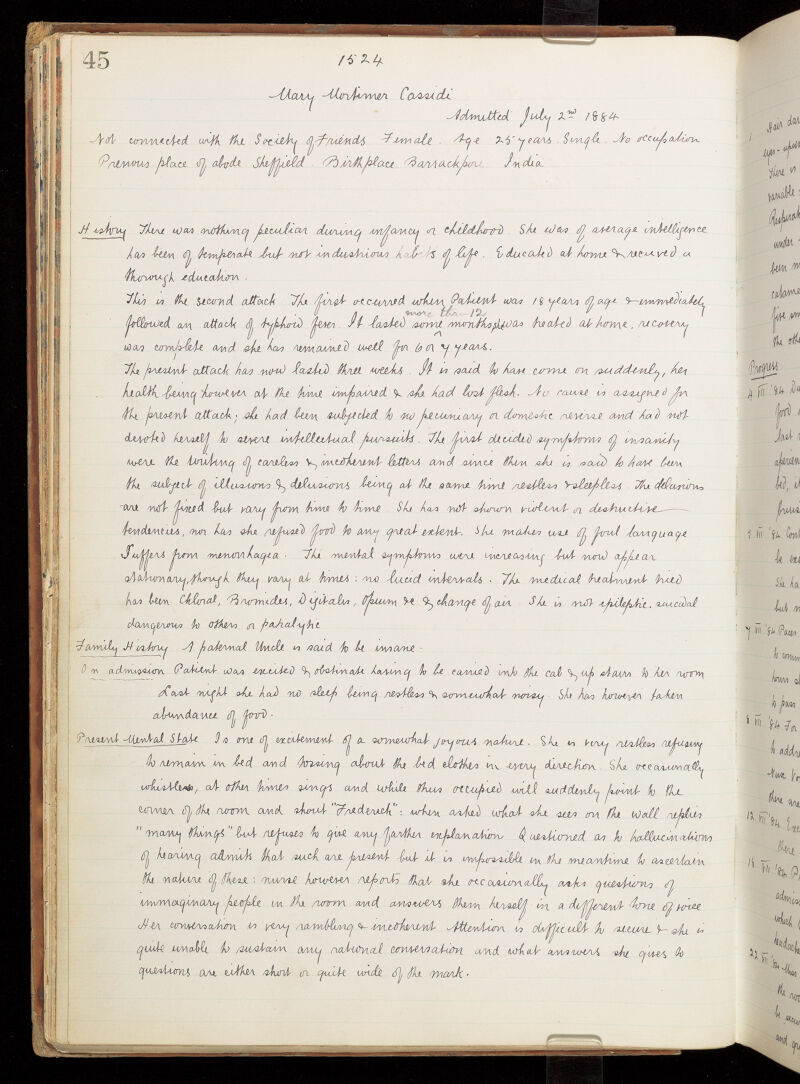 45
1524
Mary Mortimer Cassidi
Admitted July 2nd 1884
Not connected with the Society of Friends Female. Age 25 years. Single. No occupation
Previous place of abode Sheffield. Birthplace Barrackpore India
History There was nothing peculiar during infancy or childhood. She was of average intelligence
has been of temperate but not industrious habits of life. Educated at home & received a
thorough education.
This is the second attack. The first occurred when Patient was 18 years of age & immediately
more than 12
followed an attack of typhoid fever. It lasted some months & was treated at home, recovery
was complete and she has remained well for 6 or 7 years.
The present attack has now lasted three weeks. It is said to have come on suddenly, her
health being however at the time impaired & she had lost flesh. No cause is assigned for
the present attack; she had been subjected to no pecuniary or domestic reverse and had not
devoted herself to severe intellectual pursuits. The first decided symptoms of insanity
were the writing of careless & incoherent letters and since then she is said to have been
the subject of illusions & delusions being at the same time restless & sleepless. The delusions
are not fixed but vary from time to time. She has not shown violent or destructive
tendencies, nor has she refused food to any great extent. She makes use of foul language
Suffers from menorrhagea. The mental symptoms were increasing but now appear
stationary, though they vary at times: no lucid intervals. The medical treatment tried
has been Chloral, Bromides, Digitalis, Opium &c & change of air. She is not epileptic. suicidal
dangerous to others or paralytic
Family History A paternal Uncle is said to be insane.
On admission Patient was excited & obstinate having to be carried into the cab & up stairs to her room
Last night she had no sleep being restless & somewhat noisy. She has however taken
abundance of food.
Present Mental State Is one of excitement of a somewhat joyous nature. She is very restless refusing
to remain in bed and tossing about the bed clothes in every direction. She occasionally
whistles, at other times sings and while thus occupied will suddenly point to the
corner of the room and shout "Frederick": when asked what she sees on the wall replies
"many things" but refuses to give any farther explanation. Questioned as to hallucinations
of hearing admits that such are present but it is impossible in the meantime to ascertain
the nature of these: nurse however reports that she occasionally asks questions of
immaginary people in the room and answers them herself in a different tone of voice
Her conversation is very rambling & incoherent Attention is difficult to secure & she is
quite unable to sustain any rational conversation and what answers she gives to
questions are either short or quite wide of the mark.
Hair
There is
variable
under
been
the
Progress
4 VII '84
food
last
bed,
5 VII '84
be
She ha
but
7 VII '84
hours
to pass
8 VII '84 For
to
there are
12 VII '84
there
18 VII '84
which
22 VII '84
the
be
and